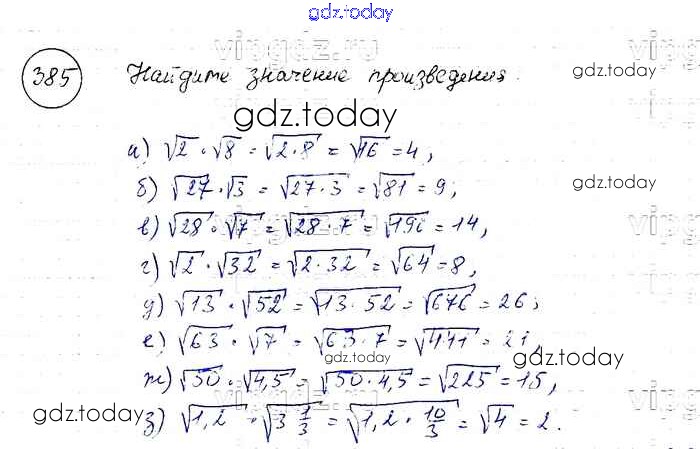 gdz.today
vipgdz.ru
385 Найдите значение произведения.
gdz.today
gdz.today
а) √2 · √8 = √2·8 = √16 = 4,
б) √27 · √3 = √27·3 = √81 = 9;
gdz.today
в) √28 · √7 = √28·7 = √196 = 14,
г) √2 · √32 = √2·32 = √64 = 8,
д) √13 · √52 = √13·52 = √676 = 26;
е) √63 · √7 = √63·7 = √441 = 21,
gdz.today
gdz.today
ж) √50 · √4,5 = √50·4,5 = √225 = 15,
gdz.today
з) √1,2 · √3 1/3 = √1,2 · 10/3 = √4 = 2.
gdz.today